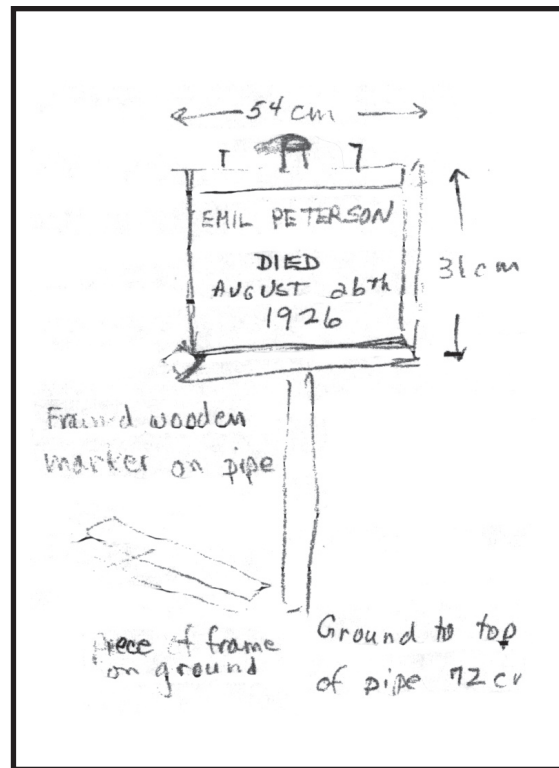 54 cm
EMIL PETERSON
DIED
AUGUST 26th
1926
31cm
Framed wooden
marker on pipe
piece of frame
on ground
Ground to top
of pipe 72 cm